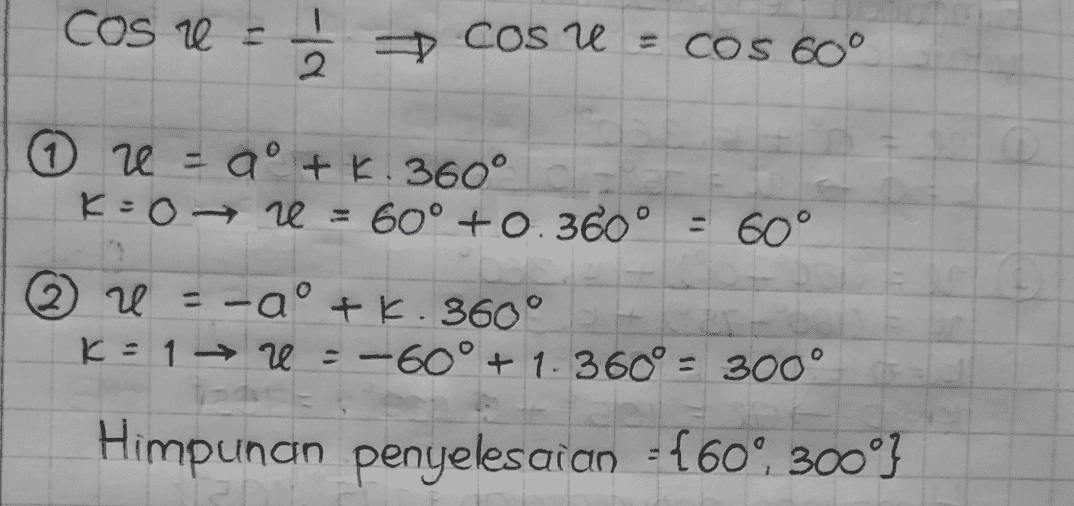 cos x = 1/2 ⇒ cos x = cos 60°
① x = a° + k. 360°
k = 0 → x = 60° + 0. 360° = 60°
② x = -a° + k. 360°
k = 1 → x = -60° + 1. 360° = 300°
Himpunan penyelesaian = {60°, 300°}